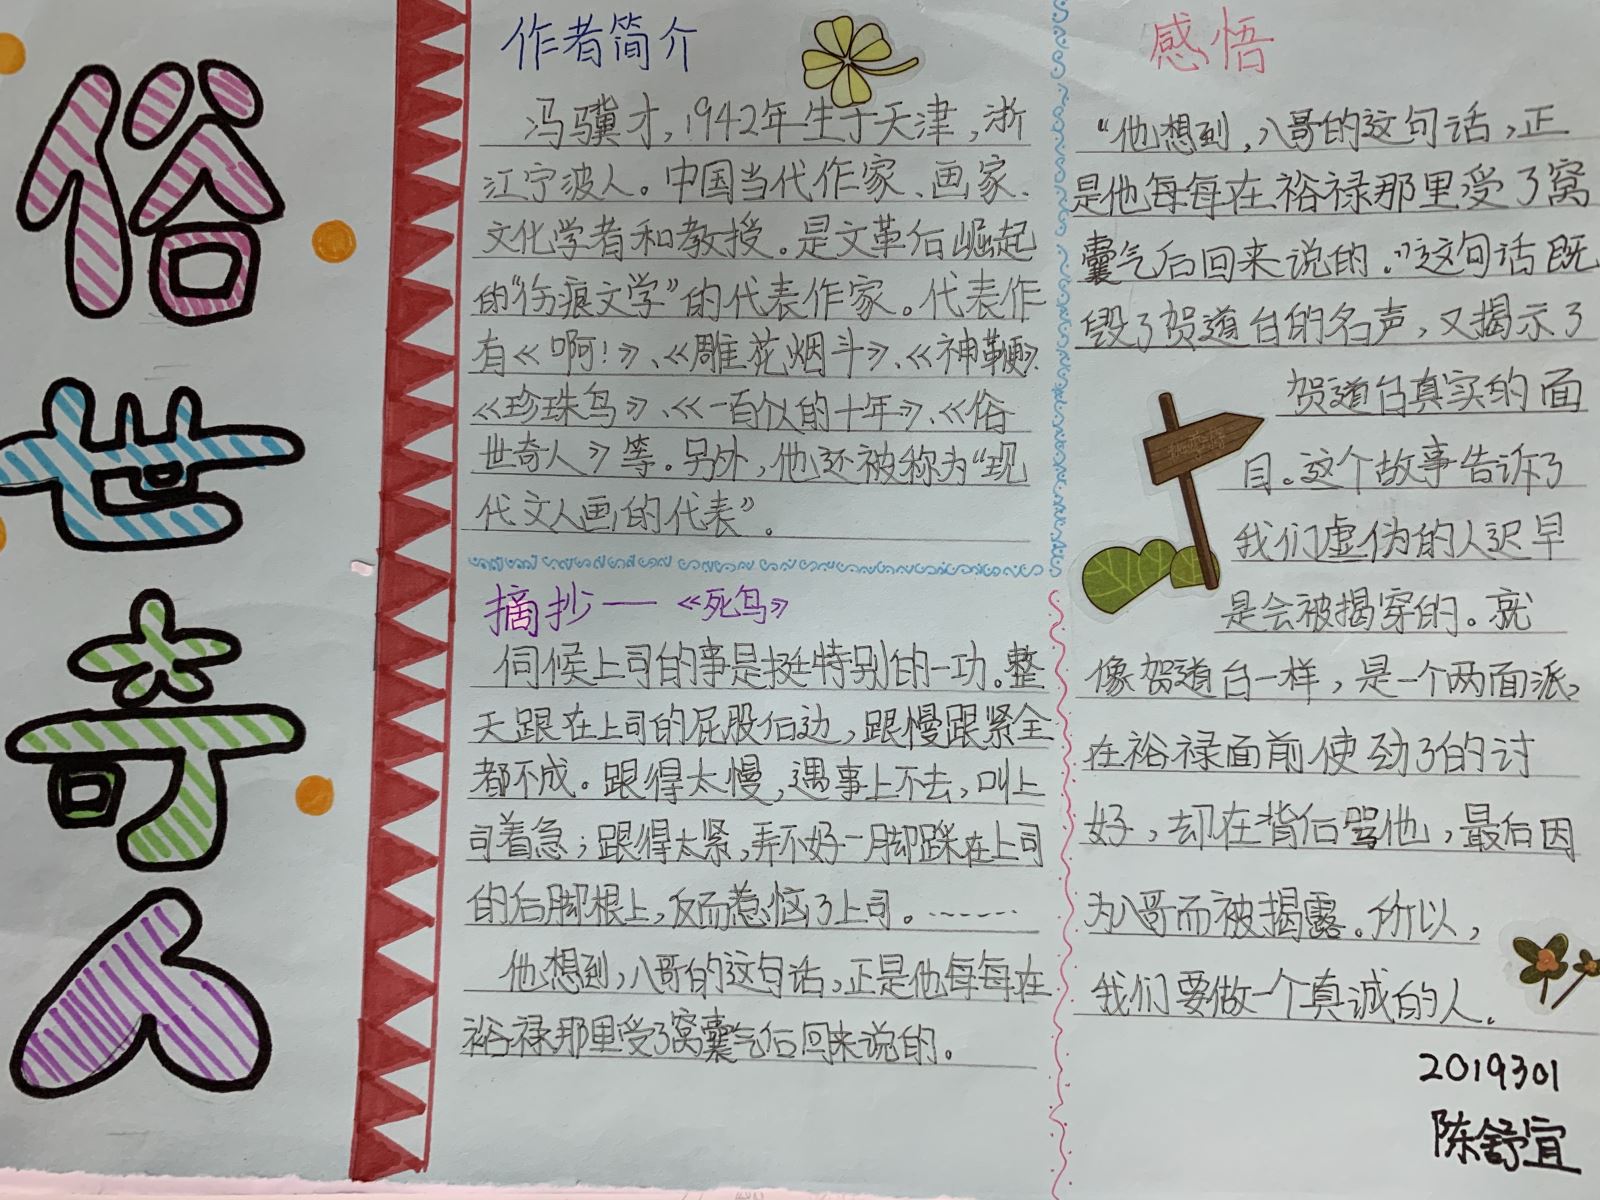 俗世奇人
作者简介
冯骥才，1942年生于天津，浙
江宁波人。中国当代作家、画家、
文化学者和教授。是文革后崛起
的“伤痕文学”的代表作家。代表作
有《啊！》、《雕花烟斗》、《神鞭》、
《珍珠鸟》、《一百个人的十年》、《俗
世奇人》等。另外，他还被称为“现
代文人画的代表”。
摘抄——《死鸟》
伺候上司的事是挺特别的一功。整
天跟在上司的屁股后边，跟慢跟紧全
都不成。跟得太慢，遇事上不去，叫上
司着急；跟得太紧，弄不好一脚踩在上司
的后脚根上，反而惹恼了上司。……
他想到，八哥的这句话，正是他每每在
裕禄那里受了窝囊气后回来说的。
感悟
“他想到，八哥的这句话，正
是他每每在裕禄那里受了窝
囊气后回来说的。”这句话既
毁了贺道台的名声，又揭示了
贺道台真实的面
目。这个故事告诉了
我们虚伪的人迟早
是会被揭穿的。就
像贺道台一样，是一个两面派，
在裕禄面前使劲了的讨
好，却在背后骂他，最后因
为八哥而被揭露。所以，
我们要做一个真诚的人。
2019301
陈舒宜